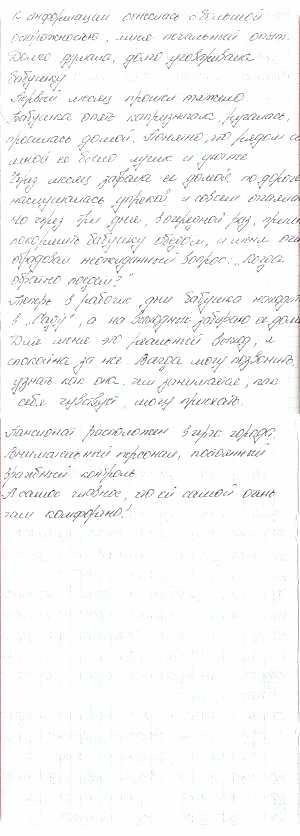 К информации отнеслась с большой
осторожностью, имея печальный опыт.
Долго думала, долго уговаривала
бабушку
Первый месяц прошел тяжело
Бабушка опять капризничала, ругалась,
просилась домой. Понятно, что рядом со
мной ей было лучше и уютнее
Через месяц забрала ее домой, по дороге
наслушалась упреков и совсем отчаялась
Но через три дня, в очередной раз, принесла
покормить бабушку обедом, и меня очень
обрадовал неожиданный вопрос: „Когда
обратно поедем?"
Теперь в рабочие дни бабушка находится
в а на выходные забираю ее домой
Для меня это реальный выход, я
спокойна за нее Всегда могу позвонить,
узнать как она, чем занимается, как
себя чувствует, могу приехать.
Пансионат расположен в черте города
Внимательный персонал, постоянный
врачебный контроль
А самое главное, что ей самой очень
там комфортно!